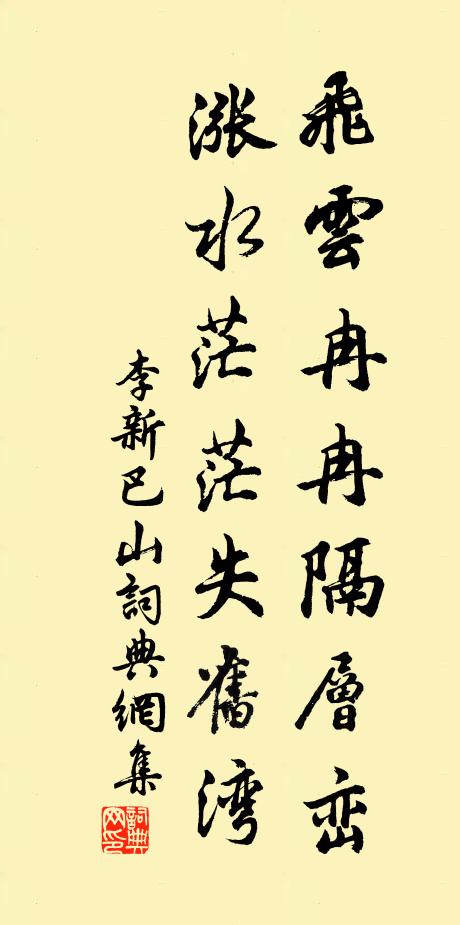 飛雲冉冉隔層峦
漲水茫茫失舊湾
李新巴山詞典網集
詞典網印